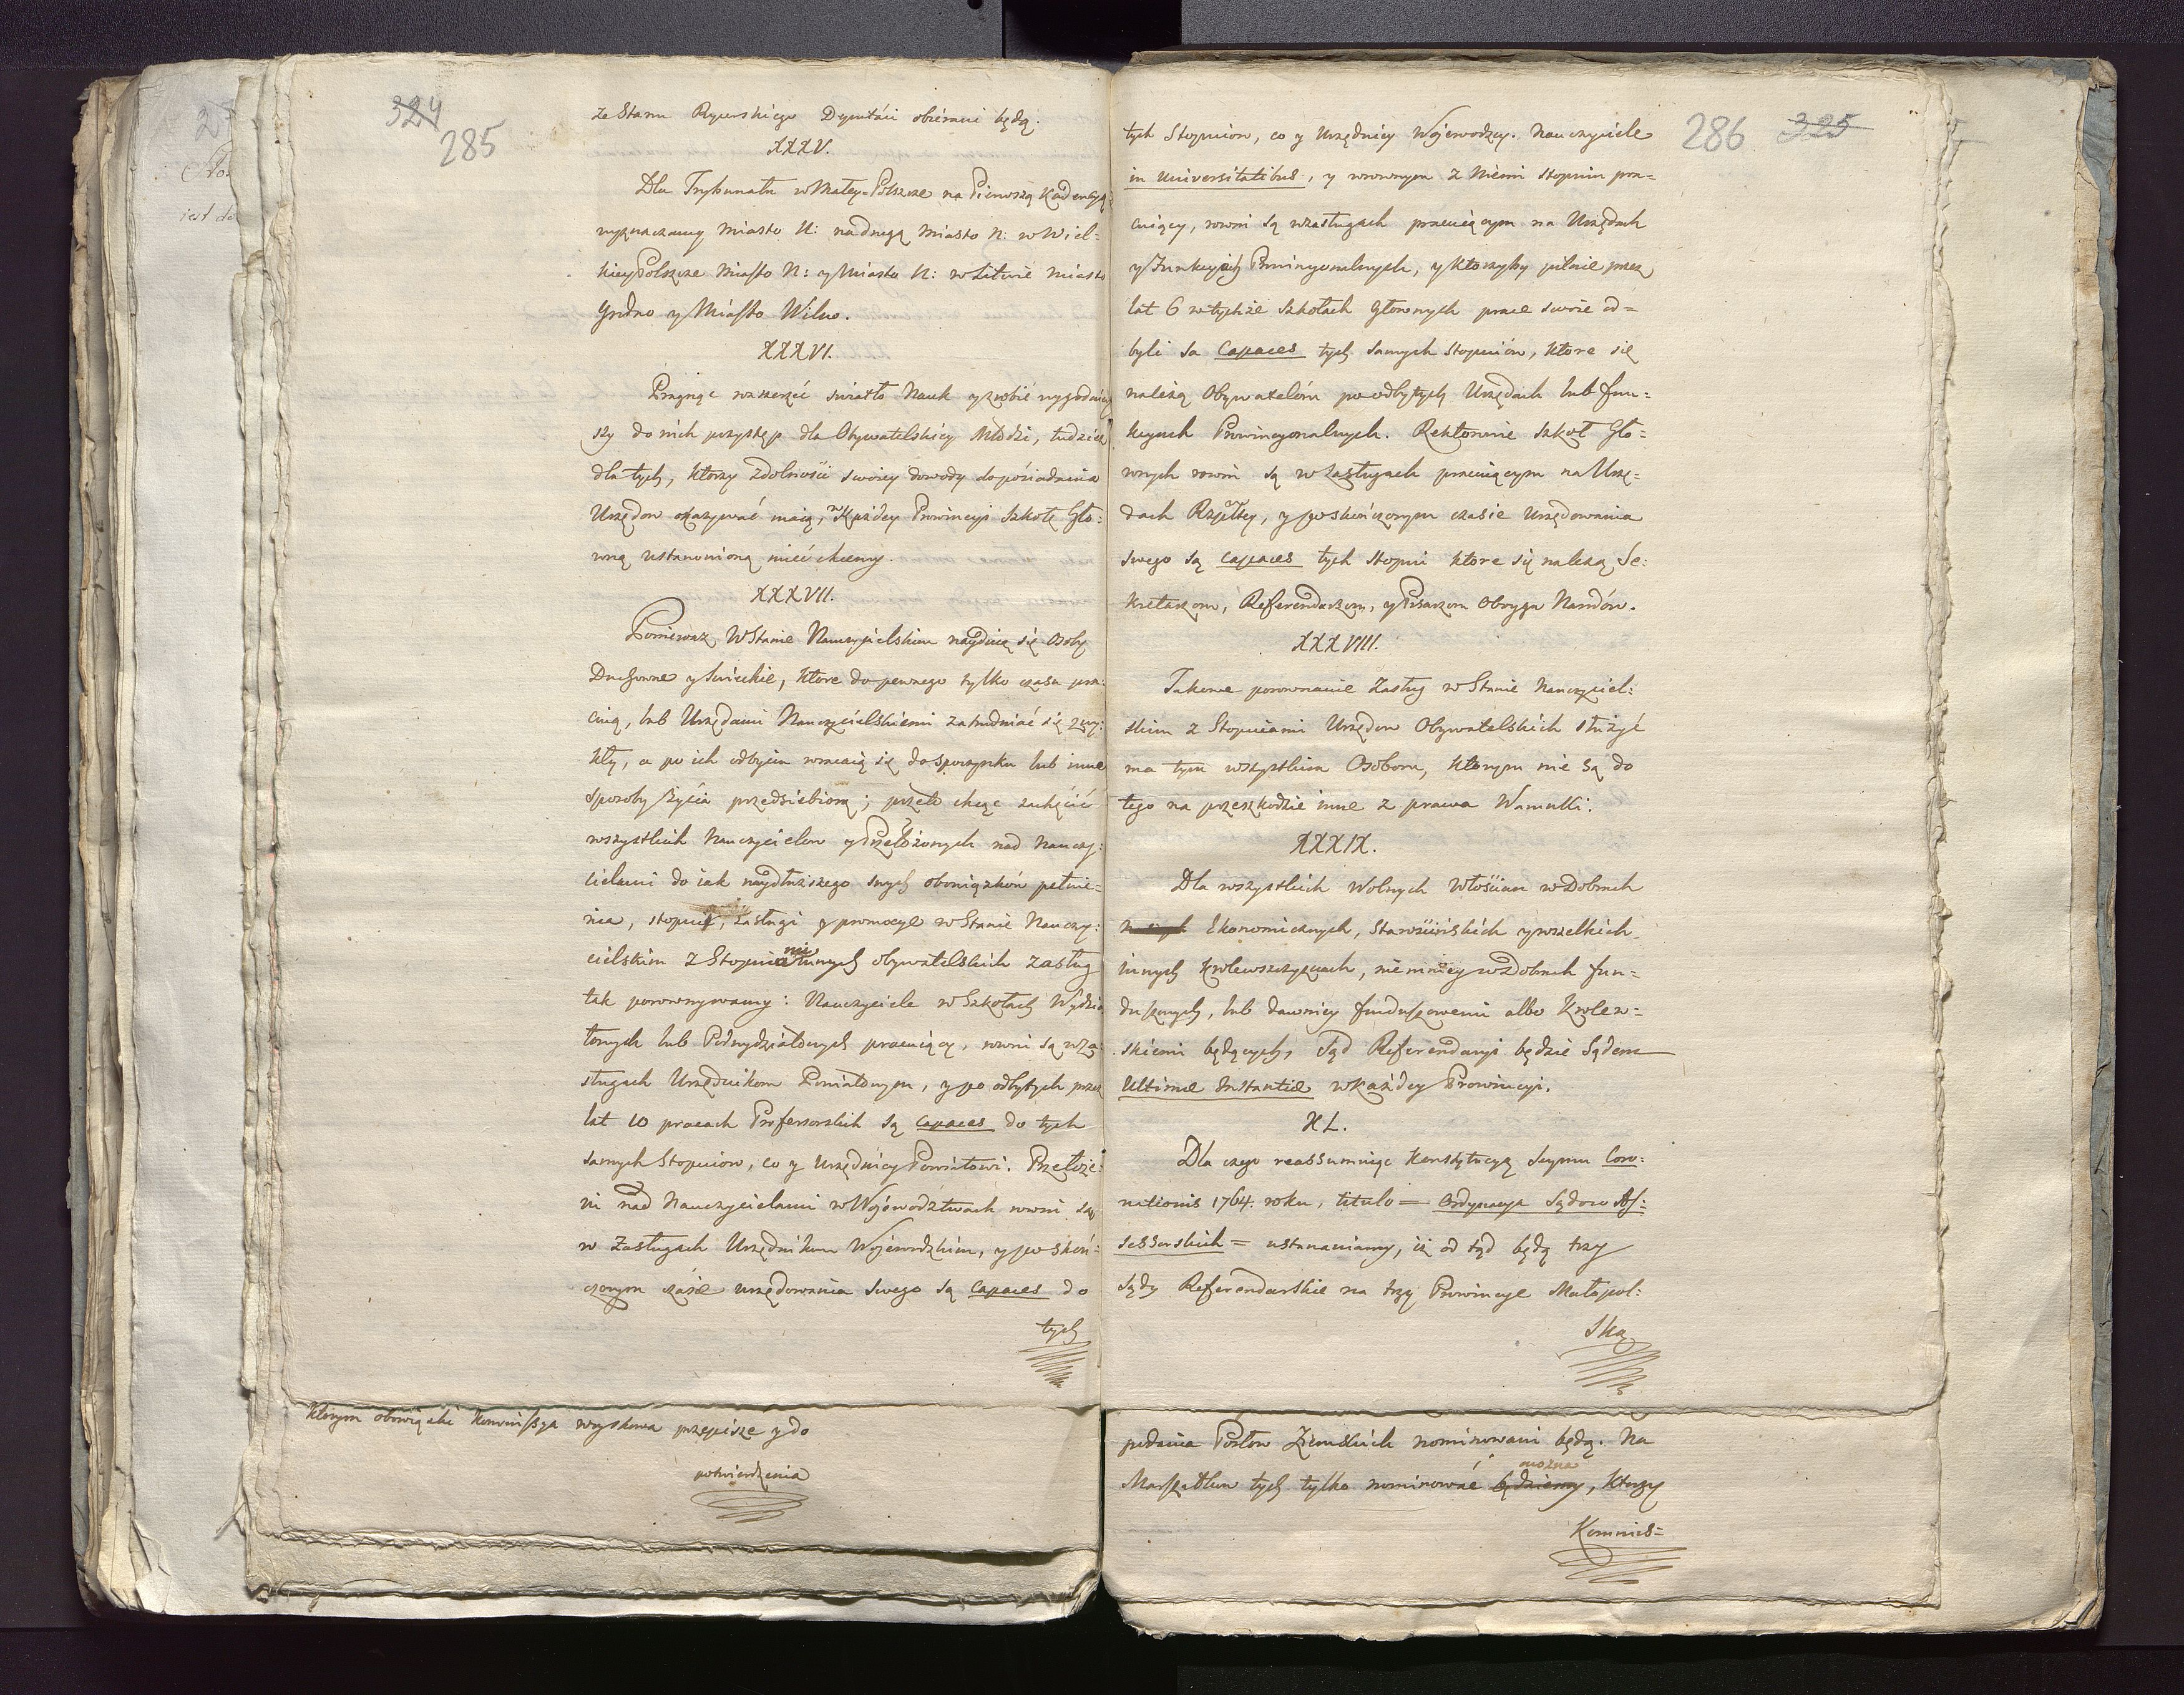 324
285
ze Stanu Rycerskiego Deputaci obierani będą.
XXXV.
Dla Trybunału w Małey-Polszcze na Pierwszą Kadencyą
wyznaczamy Miasto N: na drugą Miasto N: w Wiel=
kiey Polszcze Miasto N: y Miasto N: w Litwie Miasto
Grodno y Miasto Wilno.
XXXVI.
Pragnąc rozszerzć światło Nauk y zrobić wygodniey
szy do nich przystęp dla Obywatelskiey Młodzi, tudzież
dla tych, ktorzy zdolności swoiey dowody do posiadania
Urzędow okazywać maią, w Każdey Prowincyi Szkołę Gło:
wną ustanowioną mieć chcemy.
XXXVII.
Ponieważ W Stanie Nauczycielskim nayduią się Osoby
Duchowne y Swieckie, ktore do pewnego tylko czasu pra:
cuią, lub Urzędami Nauczycielskiemi zatrudniać się zwy:
kły, a po ich odbyciu wracaią się do spoczynku lub inne
sposoby życia przedsiębiorą; przeto chcąc zachęcić
wszystkich Nauczycielow y Przełożonych nad Nauczy:
cielami do iak naydłuższego swych obowiązkow pełnie=
nia, stopnie, zasługi y promocye w Stanie Nauczy:
cielskim z Stopniami innych obywatelskich zasług
tak porownywamy: Nauczyciele w Szkołach Wydzia
łowych lub Podwydziałowych pracuiący, rowni są w za:
sługach Urzędnikom Powiatowym, y po odbytych przez
lat 10 pracach Professorskich są capaces do tych
samych Stopniow, co y Urzędnicy Powiatowi. Przełoże:
ni nad Nauczycielami w Wojewodztwach rowni są
w Zasługach Urzędnikom Wojewodzkim, y po skoń=
czonym czasie urzędowania swego są capaces do
tych
Ktorym obowiązki Kommissya woyskowa przepisze y do
potwierdzenia
286 325
tych Stopniow, co y Urzędnicy Wojewodzcy. Nauczyciele
in Universitatibus, y w rownym z Niemi stopniu pra=
cuiący, rowni są w zasługach pracuiącym na Urzędach
y Funkcyach Prowincyonalnych, y ktorzyby pilnie przez
lat 6 w tychże Szkołach Głownych prace swoie od=
byli są Capaces tych samych stopniow, ktore się
należą Obywatelom po odbytych Urzędach lub fun=
kcyach Prowincyonalnych. Rektorowie Szkoł Gło=
wnych rowni są w zasługach pracuiącym na Urzę=
dach Rzpltey, y po skończonym czasie Urzędowania
swego są capaces tych stopni ktore się należą Se:
kretarzom, Referendarzom, y Pisarzom Oboyga Narodow.
XXXVIII.
Takowe porownanie Zasług w Stanie Nauczyciel:
skim z Stopniami Urzędow Obywatelskich służyć
ma tym wszystkim Osobom, ktorym nie są do
tego na przeszkodzie inne z prawa Warunki.
XXXIX.
Dla wszystkich Wolnych Włościan w Dobrach
Ekonomicznych, Starościńskich y wszelkich
innych Krolewszczyznach, nie mniey w Dobrach fun=
duszowych, lub dawniey funduszowemi albo Krolew=
skiemi będących, Sąd Referendaryi będzie Sądem
Ultimæ Instantiæ w Każdey Prowincyi.
XL.
Dla czego reassumuiąc Konstytucyą Seymu Coro:
nationis 1764. roku, titulo = Ordynacya Sądow As=
sessorskich = ustanawiamy, iż od tąd będą trzy
Sądy Referendarskie na trzy Prowincye Małopol:
Ską
podania Posłow Ziemskich nominowani będą. Na
można
Marszałkow tych tylko nominować będziemy, ktorzy
Kommis=